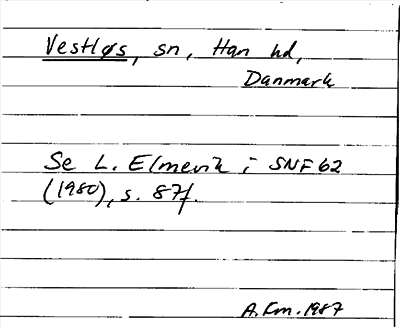 Vestløs, sn, Han hd,
Danmark
Se L. Elmevik i SNF 62
(1980), s. 87f.
A.Em. 1987